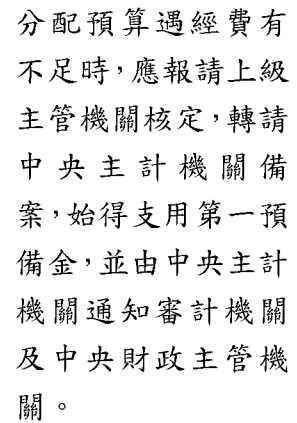 分配預算遇經費有
不足時，應報請上級
主管機關核定，轉請
中央主計機關備
案，始得支用第一預
備金，並由中央主計
機關通知審計機關
及中央財政主管機
關。